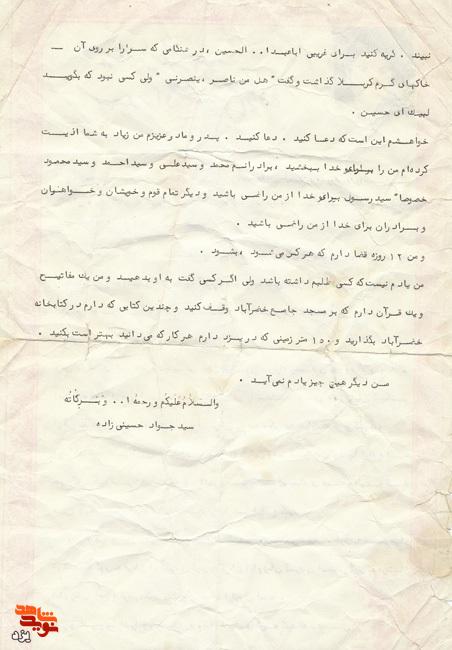 نبیند . گریه کنید برای غریبی اباعبدا.. الحسین ، در هنگامی که سر را بر روی آن —
خاکهای گرم کربلا گذاشت و گفت " هل من ناصر ، ینصرنی " ولی کسی نبود که بگوید
لبیک ای حسین .
خواهشم این است که دعا کنید . دعا کنید . پدر و مادر عزیزم من زیاد به شما اذیت
کرده‌ام من را برای خدا ببخشید ، برادرانم محمد و سید علی و سید احمد و سید محمود
خصوصا" سید رسول برای خدا از من راضی باشید و دیگر تمام قوم و خویشان و خواهران
و برادران برای خدا از من راضی باشید .
و من ۱۲ روزه قضا دارم که هر کس می‌شود ، بشود .
من یادم نیست که کسی طلبم داشته باشد ولی اگر کسی گفت به او بدهید و من یک مفاتیح
و یک قرآن دارم که بر مسجد جامع خضرآباد وقف کنید و چندین کتابی که دارم در کتابخانه
خضرآباد بگذارید و ۱۵۰ متر زمینی که در یزد دارم هر کار که می‌دانید بهتر است بکنید .
من دیگر هیچ چیز یادم نمی‌آید .
والسلام علیکم و رحمه ا.. و برکاته
سید جواد حسینی زاده
نوید شاهد
یزد